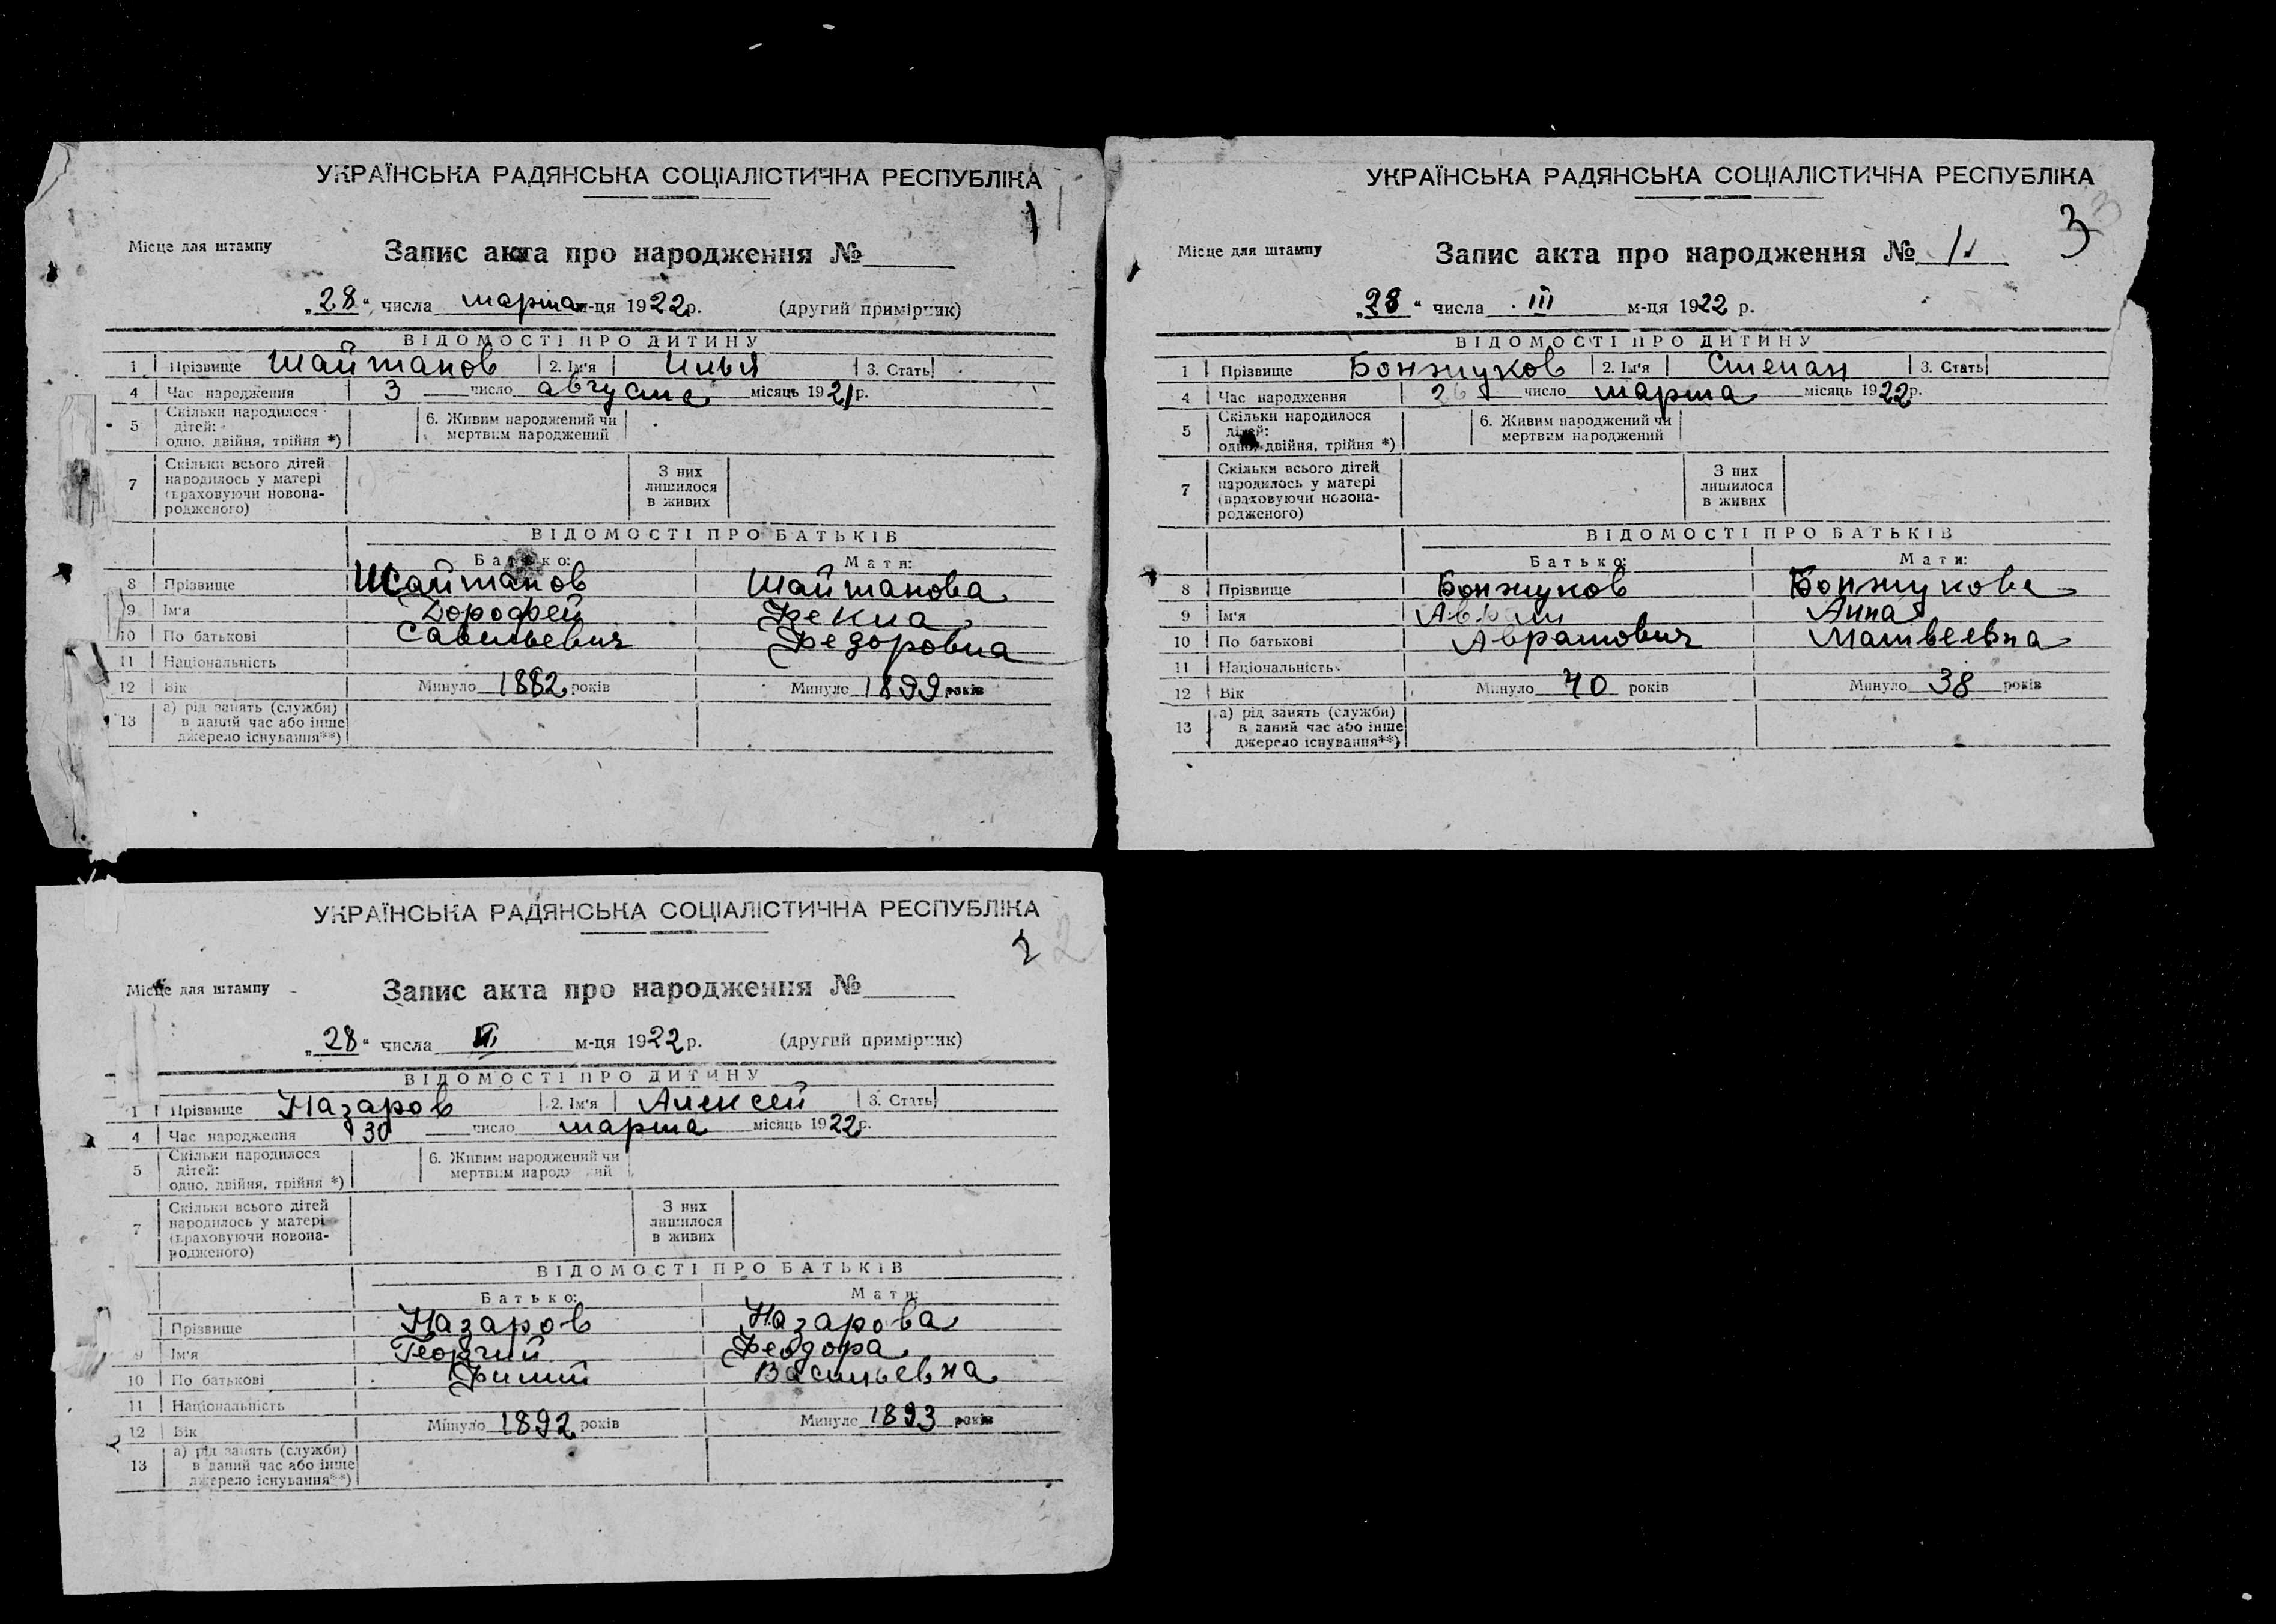 УКРАЇНСЬКА РАДЯНСЬКА СОЦІАЛІСТИЧНА РЕСПУБЛІКА
1
Місце для штампу Запис акта про народження №
„28“ числа марта м-ця 1922 р. (другий примірник)
ВІДОМОСТІ ПРО ДИТИНУ
1 Прізвище Шайтанов 2. Ім'я Илья 3. Стать
4 Час народження 3 число августа місяць 1921 р.
5 Скільки народилося дітей: одно, двійня, трійня *) 6. Живим народжений чи мертвим народжений
7 Скільки всього дітей народилось у матері (враховуючи новонародженого) З них лишилося в живих
ВІДОМОСТІ ПРО БАТЬКІВ
Батько: Мати:
8 Прізвище Шайтанов Шайтанова
9 Ім'я Дорофей Фекла
10 По батькові Савельевич Федоровна
11 Національність
12 Вік Минуло 1882 років Минуло 1899 років
13 а) рід занять (служби) в даний час або інше джерело існування**)
УКРАЇНСЬКА РАДЯНСЬКА СОЦІАЛІСТИЧНА РЕСПУБЛІКА
3 3
Місце для штампу Запис акта про народження № 1
„28“ числа III м-ця 1922 р.
ВІДОМОСТІ ПРО ДИТИНУ
1 Прізвище Бонжуков 2. Ім'я Степан 3. Стать
4 Час народження 26 число марта місяць 1922 р.
5 Скільки народилося дітей: одно, двійня, трійня *) 6. Живим народжений чи мертвим народжений
7 Скільки всього дітей народилось у матері (враховуючи новонародженого) З них лишилося в живих
ВІДОМОСТІ ПРО БАТЬКІВ
Батько: Мати:
8 Прізвище Бонжуков Бонжукова
9 Ім'я Анна
10 По батькові Аврамович Матвеевна
11 Національність
12 Вік Минуло 40 років Минуло 38 років
13 а) рід занять (служби) в даний час або інше джерело існування**)
УКРАЇНСЬКА РАДЯНСЬКА СОЦІАЛІСТИЧНА РЕСПУБЛІКА
2 2
Місце для штампу Запис акта про народження №
„28“ числа м-ця 1922 р. (другий примірник)
ВІДОМОСТІ ПРО ДИТИНУ
1 Прізвище Назаров 2. Ім'я Алексей 3. Стать
4 Час народження 30 число марта місяць 1922 р.
5 Скільки народилося дітей: одно, двійня, трійня *) 6. Живим народжений чи мертвим народжений
7 Скільки всього дітей народилось у матері (враховуючи новонародженого) З них лишилося в живих
ВІДОМОСТІ ПРО БАТЬКІВ
Батько: Мати:
Прізвище Назаров Назарова
9 Ім'я Георгий Феодора
10 По батькові Васильевна
11 Національність
12 Вік Минуло 1892 років Минуло 1893 років
13 а) рід занять (служби) в даний час або інше джерело існування**)